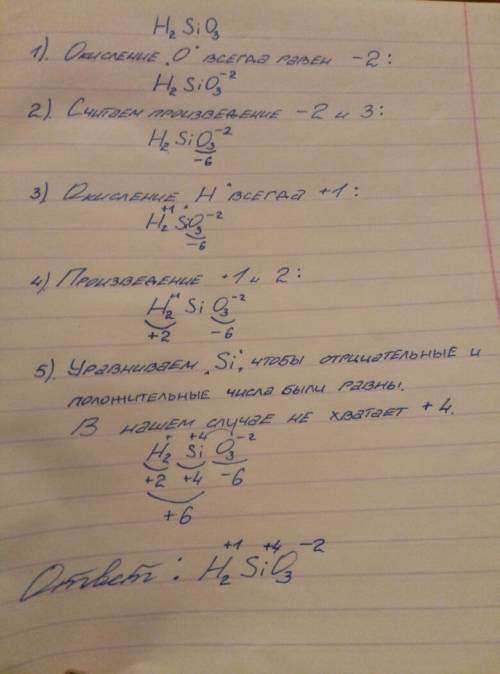 H₂SiO₃
1). Окисление „O" всегда равен -2:
H₂SiO₃⁻²
2). Считаем произведение -2 и 3:
H₂SiO₃⁻²
-6
3). Окисление „H" всегда +1:
H₂⁺¹SiO₃⁻²
-6
4). Произведение +1 и 2:
H₂⁺¹SiO₃⁻²
+2 -6
5). Уравниваем „Si", чтобы отрицательные и
положительные числа были равны.
В нашем случае не хватает +4.
H₂⁺Si⁺⁴O₃⁻²
+2 +4 -6
+6
Ответ: H₂⁺¹Si⁺⁴O₃⁻²